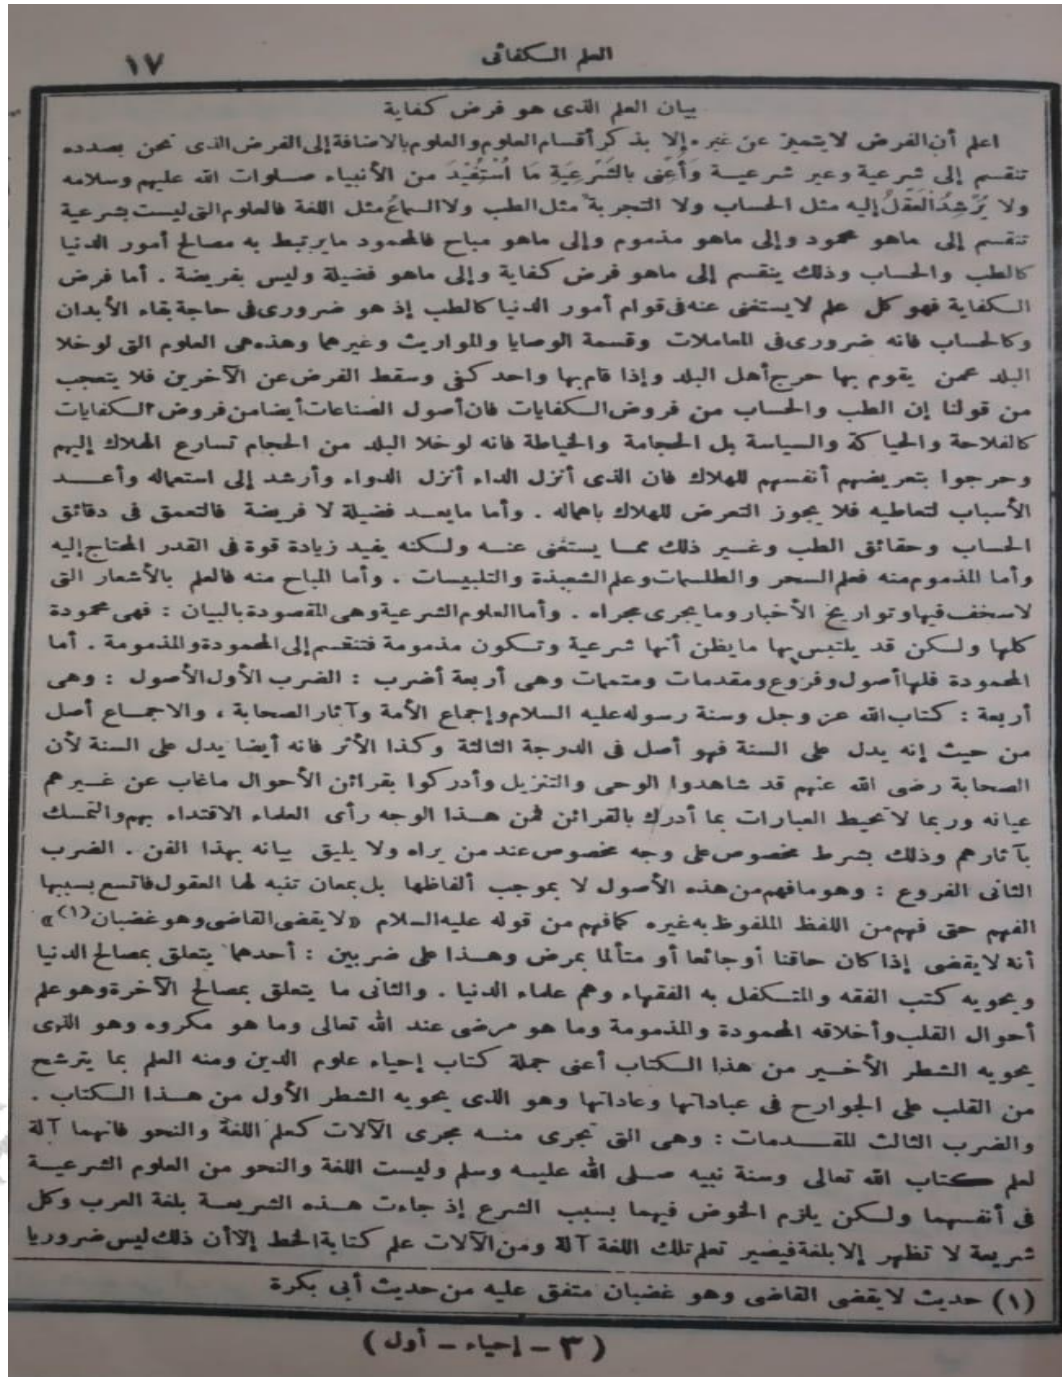 العلم الكفائى ١٧
بيان العلم الذى هو فرض كفاية
اعلم أن الفرض لا يتميز عن غيره إلا بذكر أقسام العلوم والعلوم بالاضافة إلى الفرض الذى نحن بصدده
تنقسم إلى شرعية وغير شرعية وَأَعْنِى بالشَّرْعِيَّةِ مَا اُسْتُفِيْدَ من الأنبياء صلوات الله عليهم وسلامه
ولا يُرْشِدُ الْعَقْلُ إليه مثل الحساب ولا التجربة مثل الطب ولا السماعُ مثل اللغة فالعلوم التى ليست بشرعية
تنقسم إلى ماهو محمود وإلى ماهو مذموم وإلى ماهو مباح فالمحمود مايرتبط به مصالح أمور الدنيا
كالطب والحساب وذلك ينقسم إلى ماهو فرض كفاية وإلى ماهو فضيلة وليس بفريضة . أما فرض
الكفاية فهو كل علم لايستغنى عنه فى قوام أمور الدنيا كالطب إذ هو ضرورى فى حاجة بقاء الأبدان
وكالحساب فانه ضرورى فى المعاملات وقسمة الوصايا والمواريث وغيرهما وهذه هى العلوم التى لوخلا
البلد عمن يقوم بها حرج أهل البلد وإذا قام بها واحد كفى وسقط الفرض عن الآخرين فلا يتعجب
من قولنا إن الطب والحساب من فروض الكفايات فان أصول الصناعات أيضا من فروض الكفايات
كالفلاحة والحياكة والسياسة بل الحجامة والخياطة فانه لوخلا البلد من الحجام تسارع الهلاك إليهم
وحرجوا بتعريضهم أنفسهم للهلاك فان الذى أنزل الداء أنزل الدواء وأرشد إلى استعماله وأعد
الأسباب لتعاطيه فلا يجوز التعرض للهلاك باهماله . وأما مايعد فضيلة لا فريضة فالتعمق فى دقائق
الحساب وحقائق الطب وغير ذلك مما يستغنى عنه ولكنه يفيد زيادة قوة فى القدر المحتاج إليه
وأما المذموم منه فعلم السحر والطلسمات وعلم الشعبذة والتلبيسات . وأما المباح منه فالعلم بالأشعار التى
لاسخف فيها وتواريخ الأخبار وما يجرى مجراه . وأما العلوم الشرعية وهى المقصودة بالبيان : فهى محمودة
كلها ولكن قد يلتبس بها مايظن أنها شرعية وتكون مذمومة فتنقسم إلى المحمودة والمذمومة . أما
المحمودة فلها أصول وفروع ومقدمات ومتممات وهى أربعة أضرب : الضرب الأول الأصول : وهى
أربعة : كتاب الله عز وجل وسنة رسوله عليه السلام وإجماع الأمة وآثار الصحابة ، والاجماع أصل
من حيث إنه يدل على السنة فهو أصل فى الدرجة الثالثة وكذا الأثر فانه أيضا يدل على السنة لأن
الصحابة رضى الله عنهم قد شاهدوا الوحى والتنزيل وأدركوا بقرائن الأحوال ماغاب عن غيرهم
عيانه وربما لا تحيط العبارات بما أدرك بالقرائن فمن هذا الوجه رأى العلماء الاقتداء بهم والتمسك
بآثارهم وذلك بشرط مخصوص على وجه مخصوص عند من يراه ولا يليق بيانه بهذا الفن . الضرب
الثانى الفروع : وهو مافهم من هذه الأصول لا بموجب ألفاظها بل بمعان تنبه لها العقول فاتسع بسببها
الفهم حتى فهم من اللفظ الملفوظ به غيره كما فهم من قوله عليه السلام «لايقضى القاضى وهو غضبان(١)»
أنه لايقضى إذا كان حاقنا أوجائعا أو متألما بمرض وهذا على ضربين : أحدهما يتعلق بمصالح الدنيا
ويحويه كتب الفقه والمتكفل به الفقهاء وهم علماء الدنيا . والثانى ما يتعلق بمصالح الآخرة وهو علم
أحوال القلب وأخلاقه المحمودة والمذمومة وما هو مرضى عند الله تعالى وما هو مكروه وهو الذى
يحويه الشطر الأخير من هذا الكتاب أعنى جملة كتاب إحياء علوم الدين ومنه العلم بما يترشح
من القلب على الجوارح فى عباداتها وعاداتها وهو الذى يحويه الشطر الأول من هذا الكتاب .
والضرب الثالث المقدمات : وهى التى تجرى منه مجرى الآلات كعلم اللغة والنحو فانهما آلة
لعلم كتاب الله تعالى وسنة نبيه صلى الله عليه وسلم وليست اللغة والنحو من العلوم الشرعية
فى أنفسهما ولكن يلزم الخوض فيهما بسبب الشرع إذ جاءت هذه الشريعة بلغة العرب وكل
شريعة لا تظهر إلا بلغة فيصير تعلم تلك اللغة آلة ومن الآلات علم كتابة الخط إلا أن ذلك ليس ضروريا
(١) حديث لايقضى القاضى وهو غضبان متفق عليه من حديث أبى بكرة
(٣ - إحياء - أول)